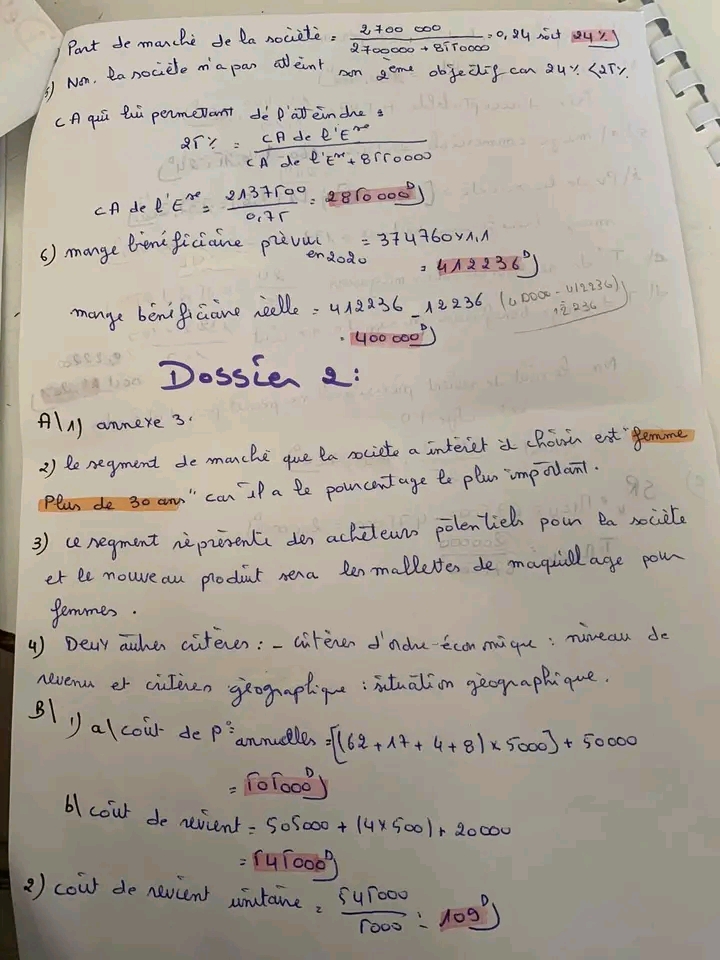 Part de marché de la société = 2 700 000 / 2700000 + 8550000 = 0,24 soit 24 %
5) Non. la société n'a pas atteint son 2ème objectif car 24 % < 25 %
CA qui lui permettant de l'atteindre :
25 % = CA de l'Ese / CA de l'Ese + 8550000
CA de l'Ese = 2137500 / 0,75 = 2850 000 D
6) marge bénéficiaire prévue en 2020 = 374760 x 1,1
= 412236 D
marge bénéficiaire réelle = 412236 - 12236 (40000 - 412236)
12236
= 400 000 D
Dossier 2 :
A\ 1) annexe 3.
2) le segment de marché que la société a intérêt à choisir est "femme
Plus de 30 ans" car il a le pourcentage le plus important.
3) ce segment représente des acheteurs potentiels pour la société
et le nouveau produit sera les mallettes de maquillage pour
femmes.
4) Deux autres critères : - critères d'ordre économique : niveau de
revenu et critères géographique : situation géographique.
B\ 1) a\ coût de P° annuelles = [(62 + 17 + 4 + 8) x 5000] + 50000
= 505000 D
b\ coût de revient = 505000 + (4 x 500) + 20000
= 545000 D
2) coût de revient unitaire = 545000 / 5000 = 109 D